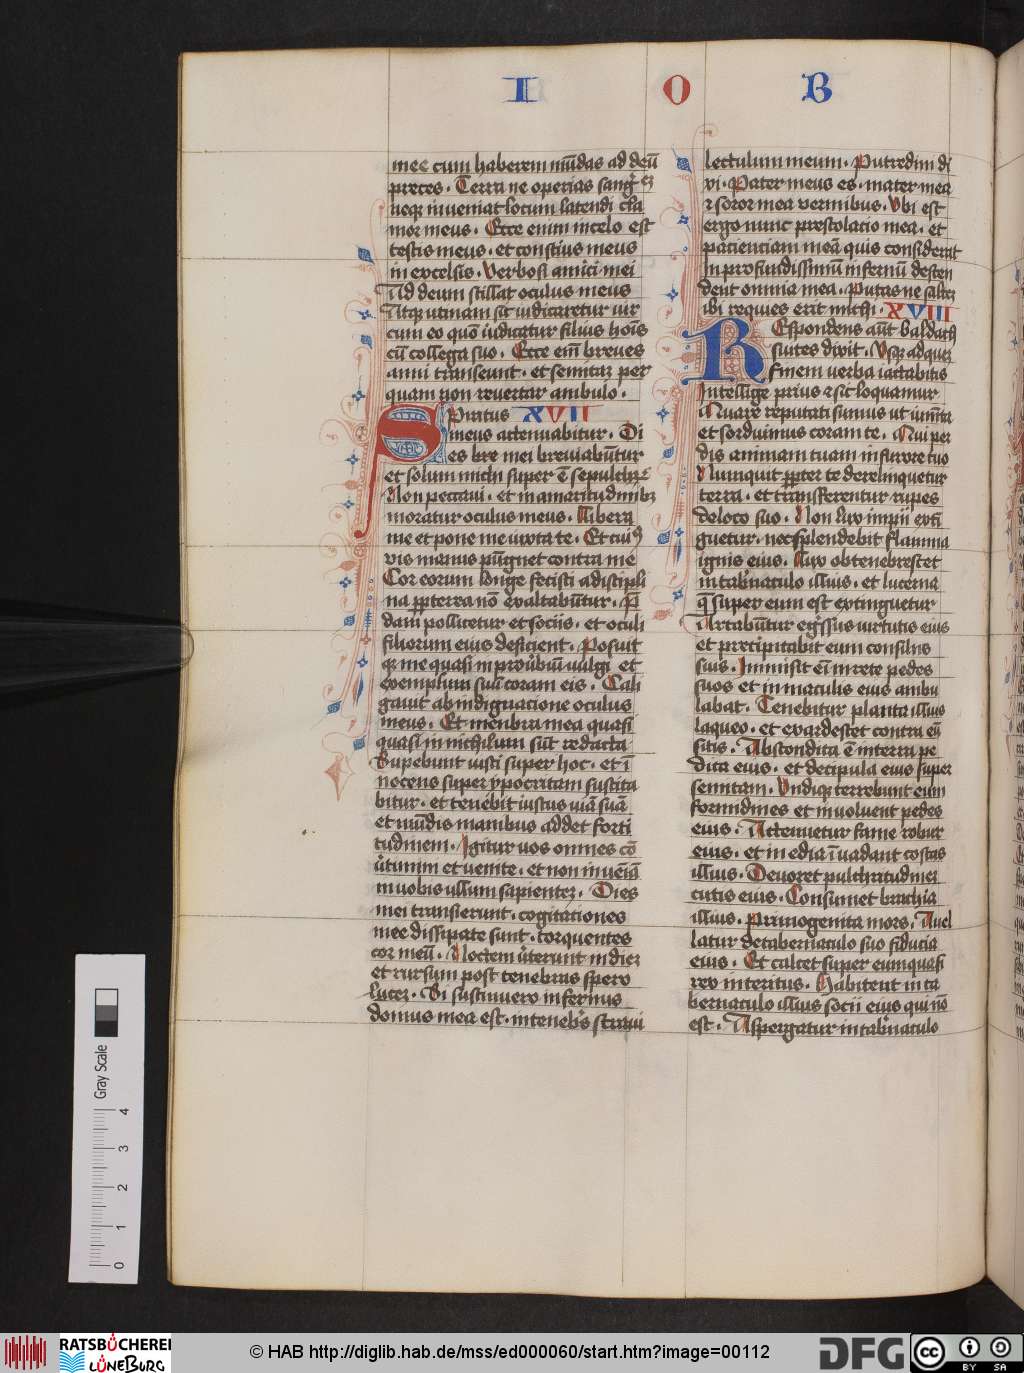 I O B
mee cum haberem mūdas ad deū
preces. Terra ne operias sangͥ
neqꝫ inveniat locum latendi cla
mor meus. Ecce enim in celo est
testis meus. et conscius meus
in excelsis. Verbosi amici mei
Ad deum stillat oculus meus
Atqꝫ utinam sic iudicaretur vir
cum eo quō iudicatur filius hoīs
cū collega suo. Ecce em̄ breves
anni transeunt. et semitaꝫ per
quam non revertar ambulo.
Spiritus XVII
meus attenuabitur. Di
es bre mei breviabūtur
et solum michi super ē sepulchꝛ
Non peccavi. et in amaritudinibꝫ
moratur oculus meus. Libera
me et pone me iuxta te. Et cuiꝰ
vis manus pūgnet contra me
Cor eorum longe fecisti a discipli
na ꝓpterea nō exaltabūtur. P̄
dam pollicetur et sociis. et oculi
filiorum eius deficient. Posuit
qꝛ me quasi in prov̄biū vulgi et
exemplum suū coram eis. Cali
gavit ab indignatione oculus
meus. Et menbra mea quasi
quasi in nichilum sūt redacta
Stupebunt iusti super hoc. et ī
nocens super ypocritam suscita
bitur. et tenēbit iustus viā suā
et mūdis manibus addet forti
tudinem. Igitur vos omnes cō
v̄timini et venite. et non inveīā
in vobis ullum sapienteꝫ. Dies
mei transierunt. cogitationes
mee dissipate sunt. torquentes
cor meū. Noctem v̄terunt in dieꝫ
et rursum post tenebras spero
luceꝫ. Si sustinuero infernus
domus mea est. in tenebͥs stravi
lectulum meum. Putredini di
xi. Pater meus es. mater mea
⁊ soror mea vermibus. Vbi est
ergo nunc prestolatio mea. et
patientiam meā quis considerat
In profundissimū infernū descen
dent omnia mea. Putas ne salteꝫ
ibi requies erit michi. XVIII
REspondens aūt baldach
suites dixit. Vsqꝫ ad queꝫ
finem verba iactabitis
Intellige prius ⁊ sic loquamur
Quare reputati sumus ut iumēta
et sorduimus coram te. Qui per
dis animam tuam in furore tuo
Numquit ꝓpter te derelinquetur
terra. et transferentur rupes
de loco suo. Non lux impii exti
guetur. nec splendebit flamma
ignis eius. Lux obtenebrescet
in tab̄naculo illius. et lucerna
q̄ super eum est extinguetur
Artabūtur egͥssus virtutis eius
et precipitabit eum consiliū
suis. Immisit eī in rete pedes
suos et in maculis eius ambu
labat. Tenebitur planta illius
laqueo. et exardescet contra eū
sitis. Abscondita ē in terra pe
dica eius. et decipula eius super
semitam. Undiqꝫ terrebunt eum
formidines et involuent pedes
eius. Attenuetur fame robur
eius. et inedia īvadant costas
illius. Devoret pulchritudineꝫ
cutis eius. Consumet brachia
illius. primogenita mors. Avel
latur de tabernaculo suo fiducia
eius. Et calcet super eum quasi
rex interitus. Habitent in ta
bernaculo illius socii eius qui nō
est. Aspergatur in tab̄naculo
Gray Scale
0 1 2 3 4
RATSBÜCHEREI
LÜNEBURG
© HAB http://diglib.hab.de/mss/ed000060/start.htm?image=00112
DFG
cc BY SA